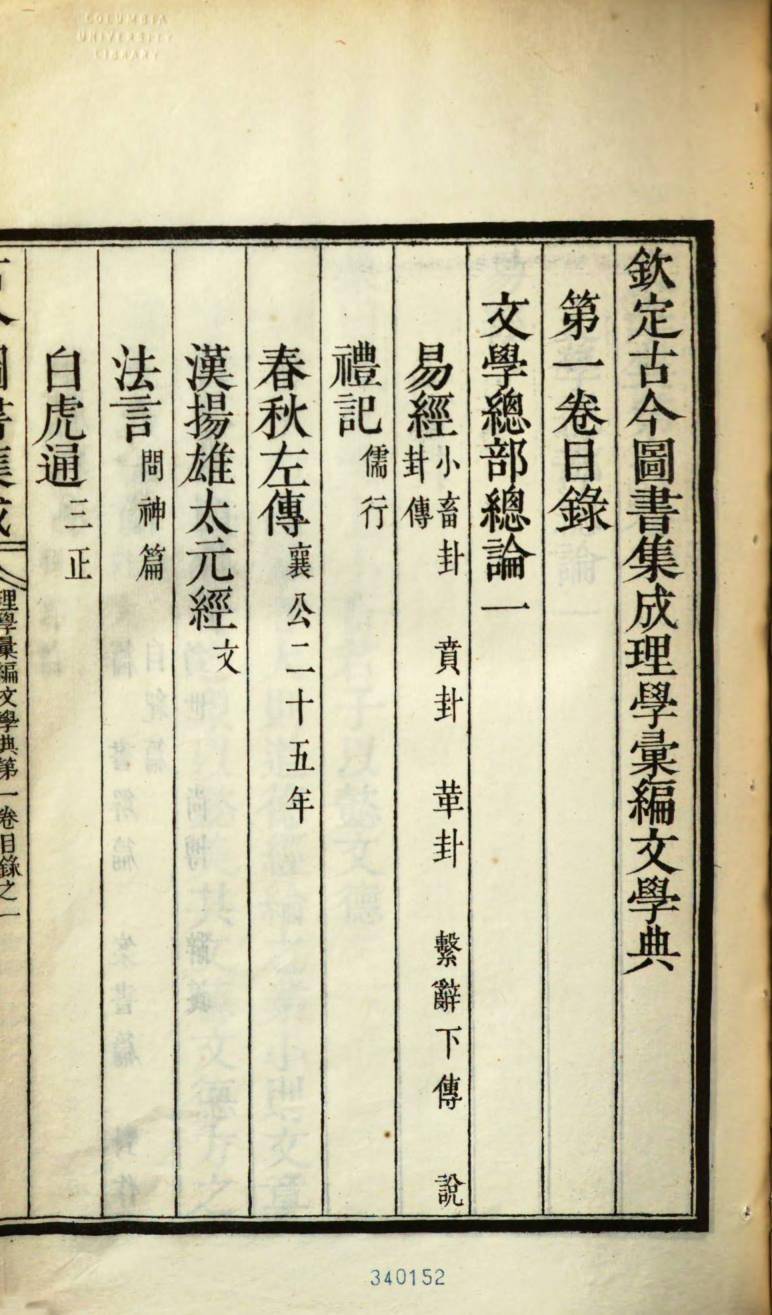 COLUMBIA
UNIVERSITY
LIBRARY
欽定古今圖書集成理學彙編文學典
第一卷目錄
文學總部總論一
易經 小畜卦 賁卦 革卦 繫辭下傳 說
卦傳
禮記 儒行
春秋左傳 襄公二十五年
漢揚雄太元經 文
法言 問神篇
白虎通 三正
古今圖書集成 理學彙編文學典第一卷目錄之一
340152